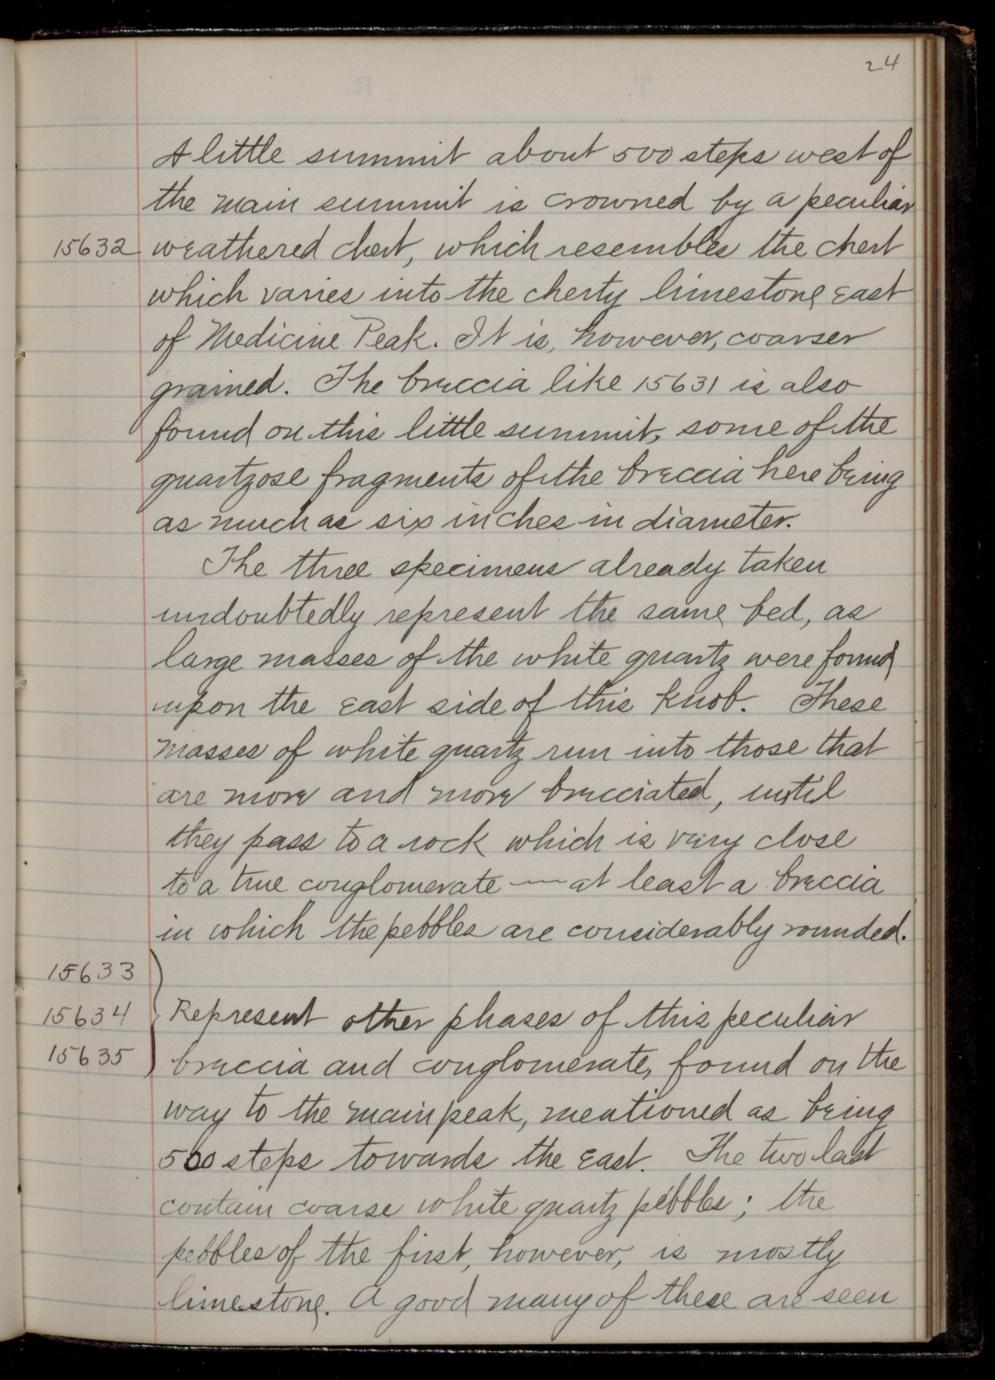 24
A little summit about 500 steps west of
the main summit is crowned by a peculiar
15632 weathered chert, which resembles the chert
which varies into the cherty limestone east
of Medicine Peak. It is, however, coarser
grained. The breccia like 15631 is also
found on this little summit, some of the
quartzose fragments of the breccia here being
as much as six inches in diameter.
The three specimens already taken
undoubtedly represent the same bed, as
large masses of the white quartz were found
upon the east side of this knob. These
masses of white quartz run into those that
are more and more brecciated, until
they pass to a rock which is very close
to a true conglomerate — at least a breccia
in which the pebbles are considerably rounded.
15633
15634 Represent other phases of this peculiar
15635 breccia and conglomerate, found on the
way to the main peak, mentioned as being
500 steps towards the east. The two last
contain coarse white quartz pebbles; the
pebbles of the first, however, is mostly
limestone. A good many of these are seen